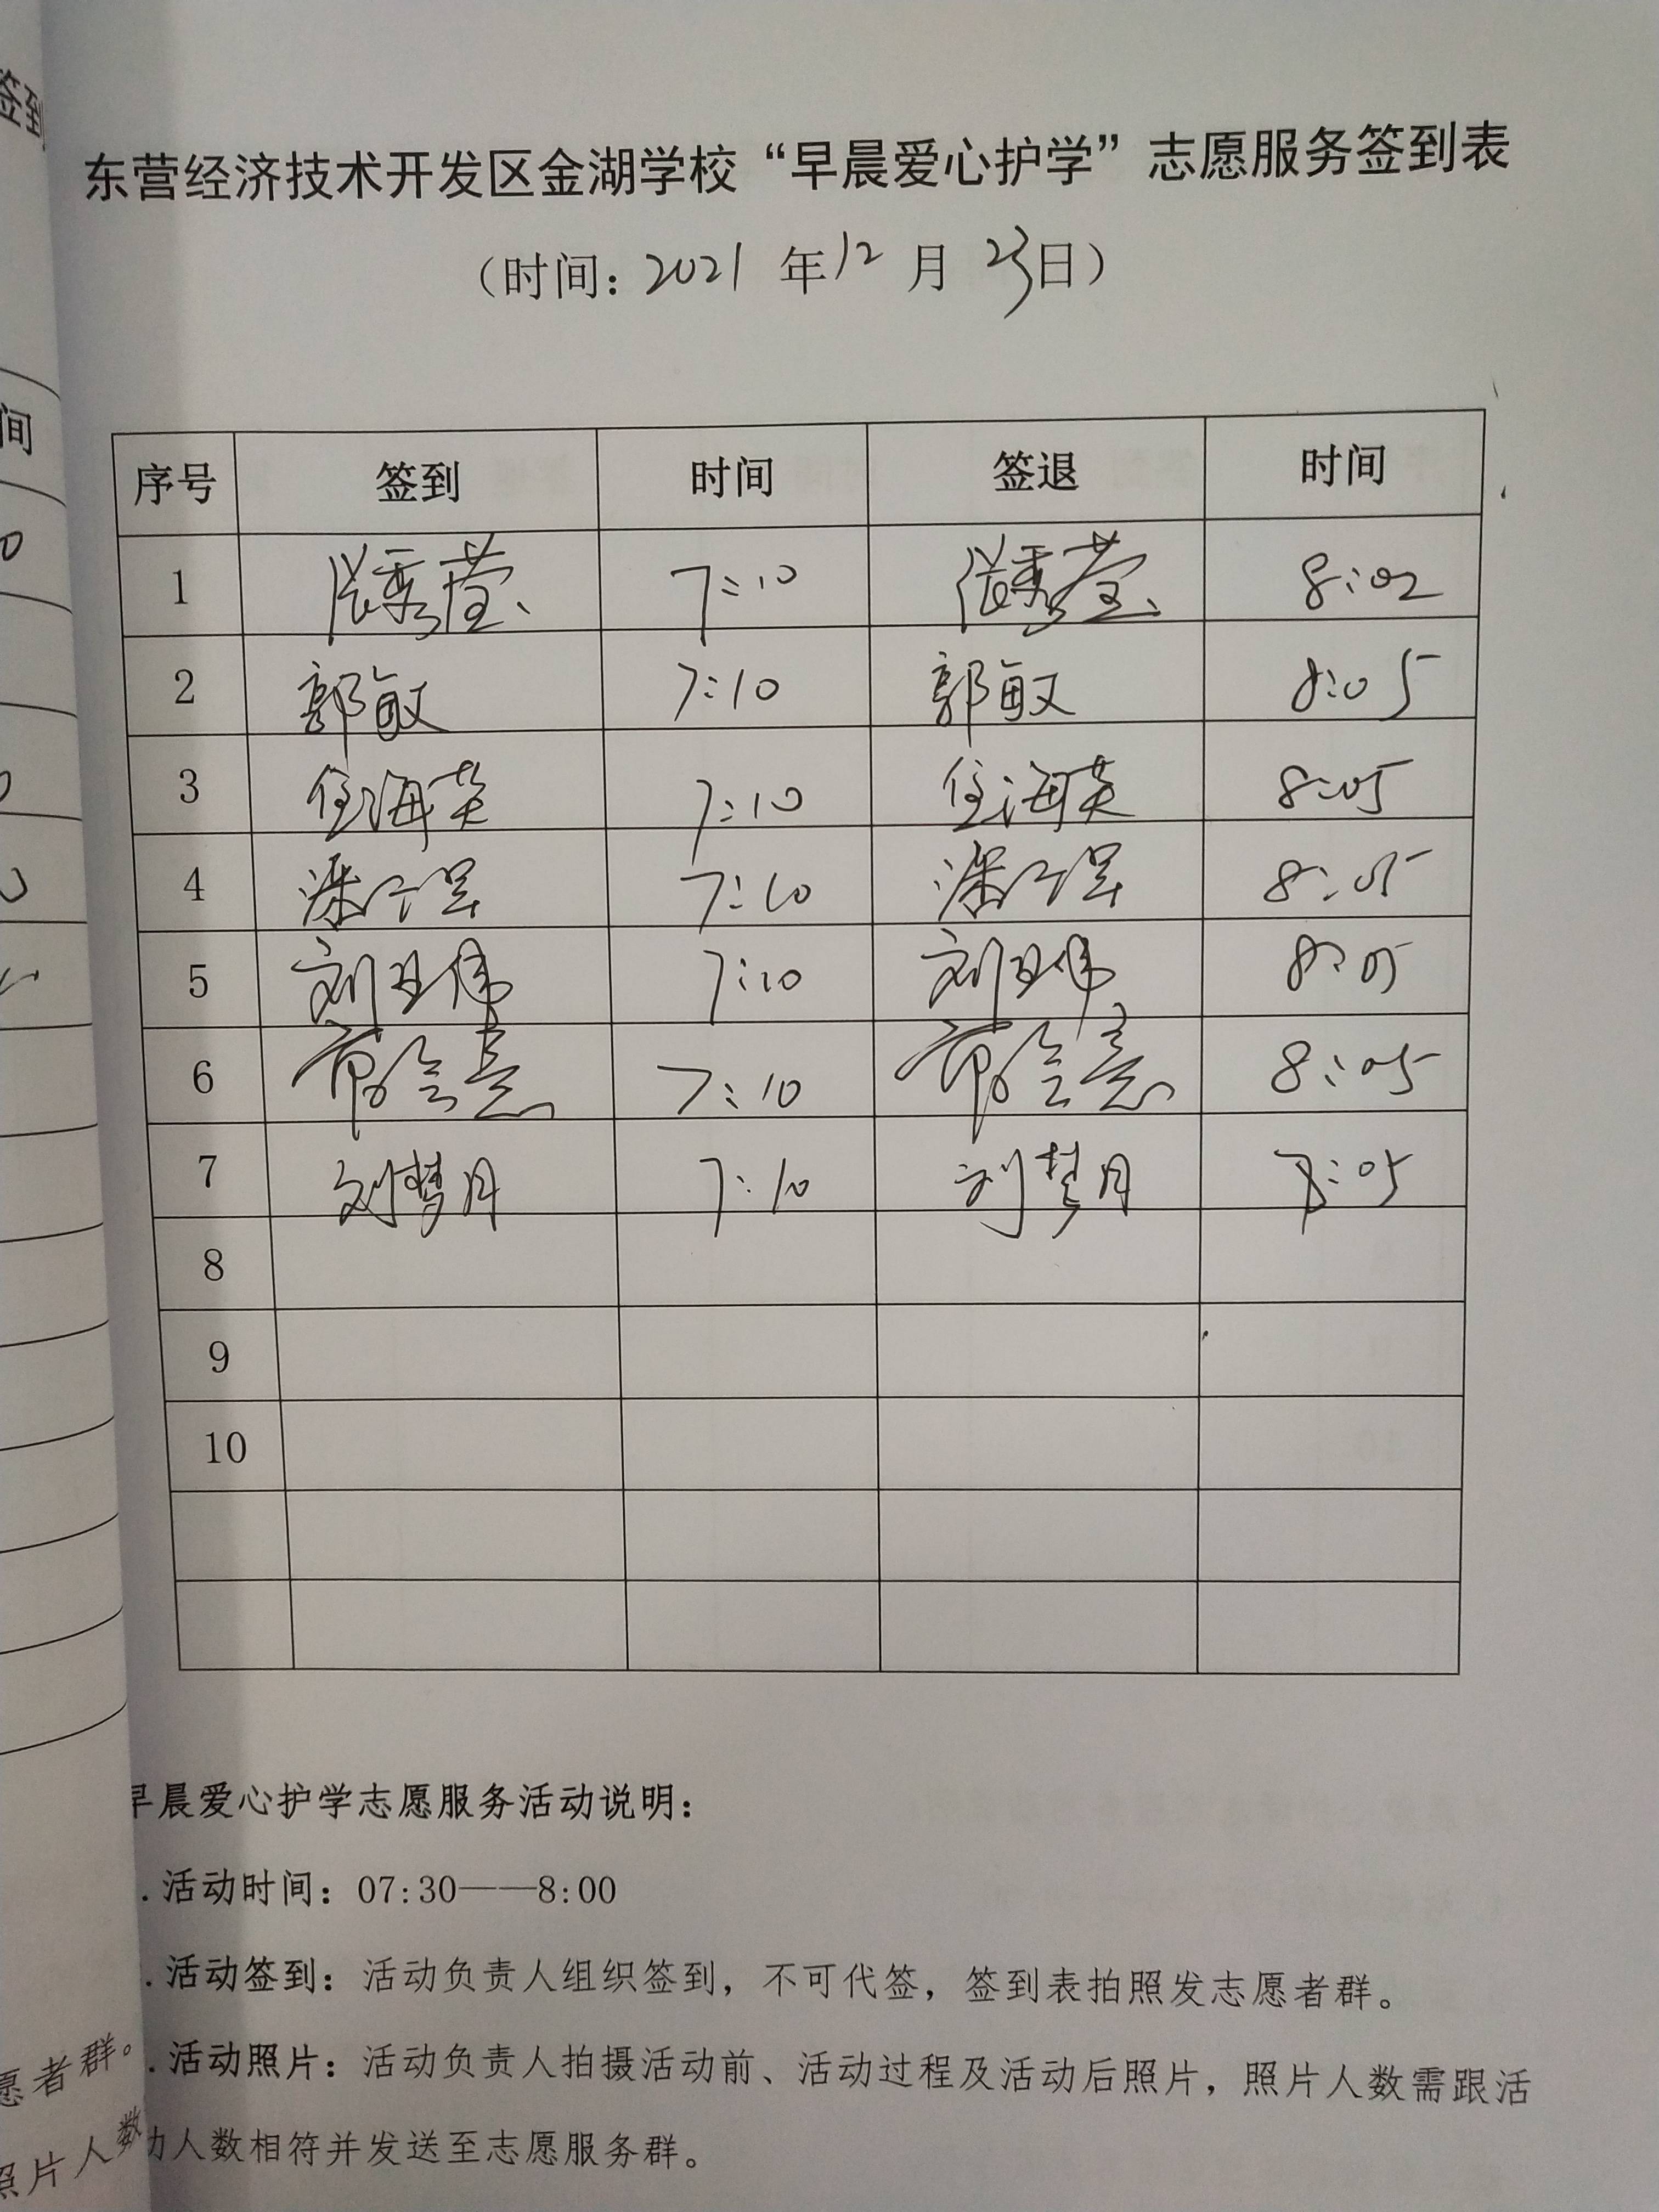 签到
东营经济技术开发区金湖学校“早晨爱心护学”志愿服务签到表
（时间：2021 年 12 月 23日）
间
序号 签到 时间 签退 时间
1 张秀莹 7:10 张秀莹 8:02
2 郭敏 7:10 郭敏 8:05
3 任海英 7:10 任海英 8:05
4 7:10 8:05
5 刘卫伟 7:10 刘卫伟 8:05
6 7:10 8:05
7 刘梦月 7:10 刘梦月 8:05
8
9
10
早晨爱心护学志愿服务活动说明：
.活动时间：07:30——8:00
.活动签到：活动负责人组织签到，不可代签，签到表拍照发志愿者群。
愿者群。
.活动照片：活动负责人拍摄活动前、活动过程及活动后照片，照片人数需跟活
照片人数
动人数相符并发送至志愿服务群。